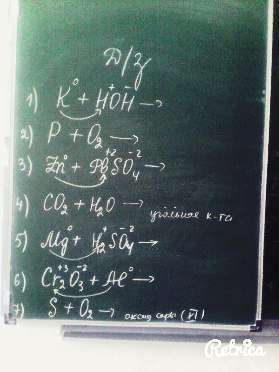 Д/з
1) K⁰ + H⁺OH⁻ →
2) P + O₂ →
3) Zn⁰ + Pb⁺²SO₄⁻² →
4) CO₂ + H₂O → угольная к-та
5) Mg⁰ + H₂⁺SO₄⁻² →
6) Cr₂⁺³O₃⁻² + Al⁰ →
7) S + O₂ → оксид серы (VI)
Retrica